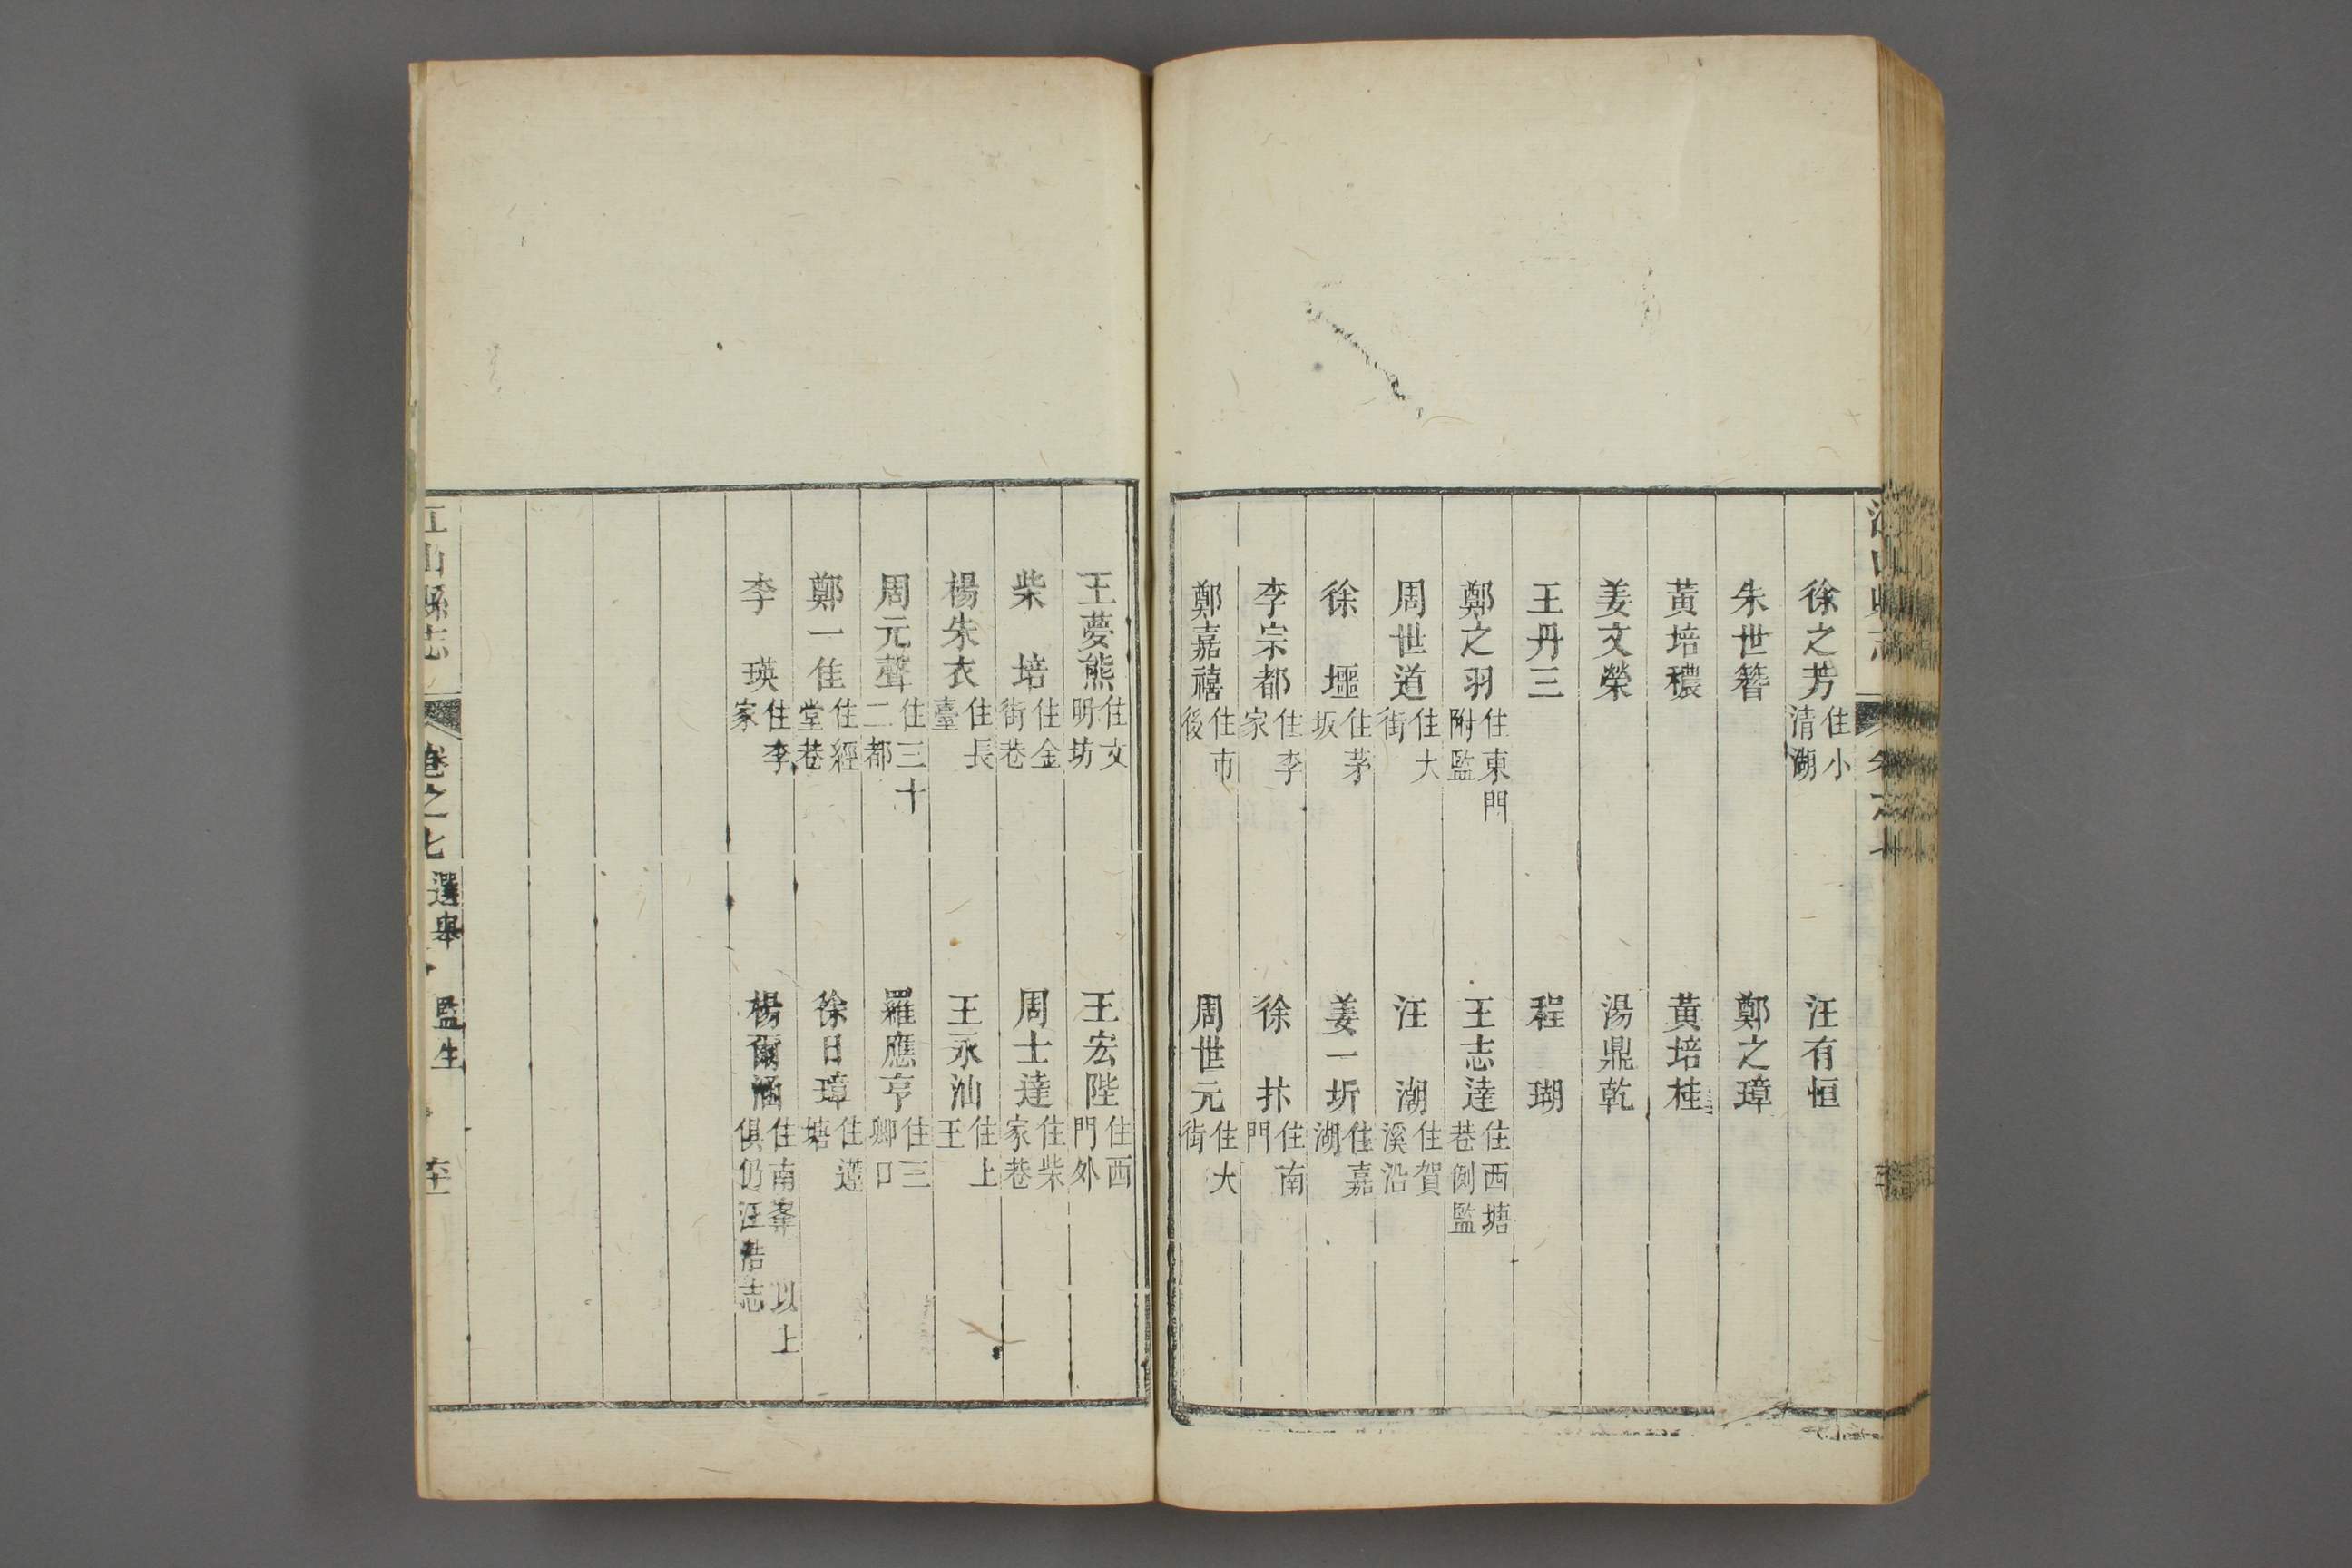 徐之芳 住小清湖 汪有恒
朱世簪 鄭之璋
黃培穠 黃培桂
姜文榮 湯鼎乾
王丹三 程瑚
鄭之羽 住東門附監 王志達 住西塘巷側監
周世道 住大街 汪潮 住賀溪沿
徐堰 住茅坂 姜一圻 住嘉湖
李宗都 住李家 徐抃 住南門
鄭嘉禧 住市後 周世元 住大街
王夢熊 住文明坊 王宏陛 住西門外
柴培 住金街巷 周士達 住柴家巷
楊朱衣 住長臺 王永汕 住上王
周元聲 住三十二都 羅應亨 住三卿口
鄭一佳 住經堂巷 徐日璋 住蓮塘
李瑛 住李家 楊爾涵 住南峯 以上俱仍汪浩志
江山縣志 卷之七 選舉 監生